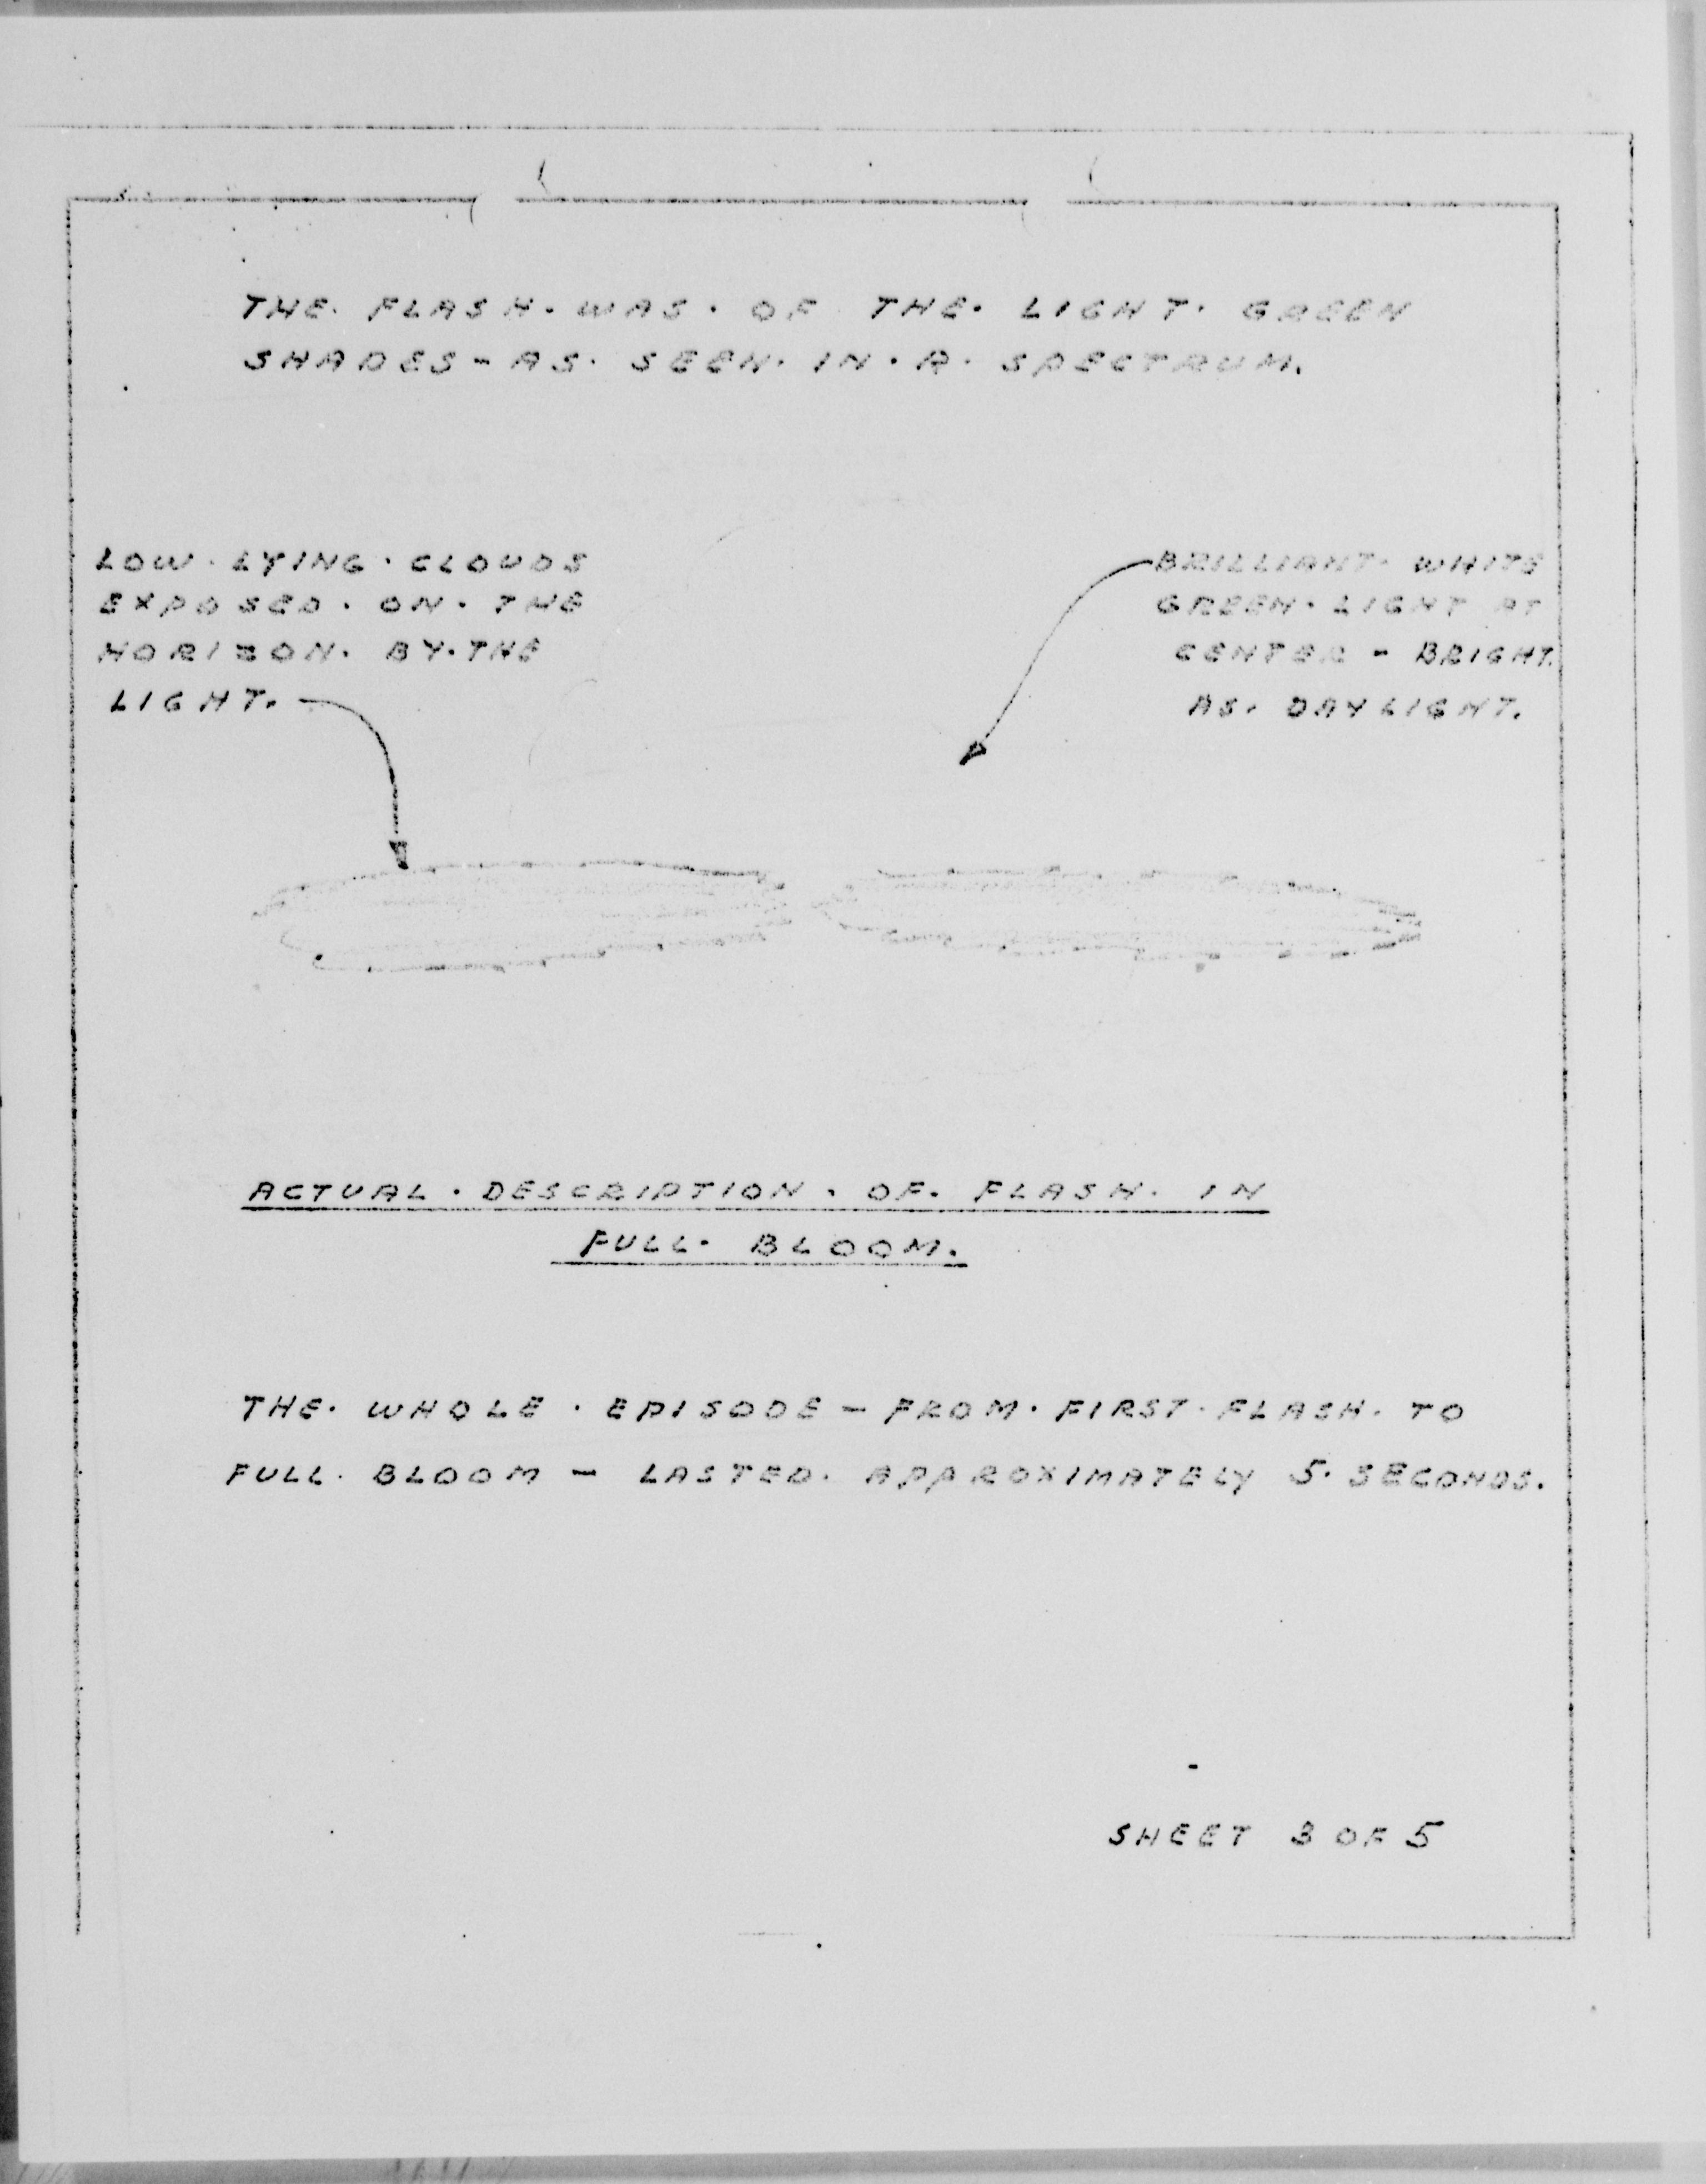 THE. FLASH. WAS. OF THE. LIGHT. GREEN
SHADES - AS. SEEN. IN. A. SPECTRUM.
LOW. LYING. CLOUDS
EXPOSED. ON. THE
HORIZON. BY. THE
LIGHT.
BRILLIANT. WHITE
GREEN. LIGHT AT
CENTER - BRIGHT.
AS. DAYLIGHT.
ACTUAL. DESCRIPTION. OF. FLASH. IN
FULL. BLOOM.
THE. WHOLE. EPISODE - FROM. FIRST. FLASH. TO
FULL. BLOOM - LASTED. APPROXIMATELY 5. SECONDS.
SHEET 3 OF 5